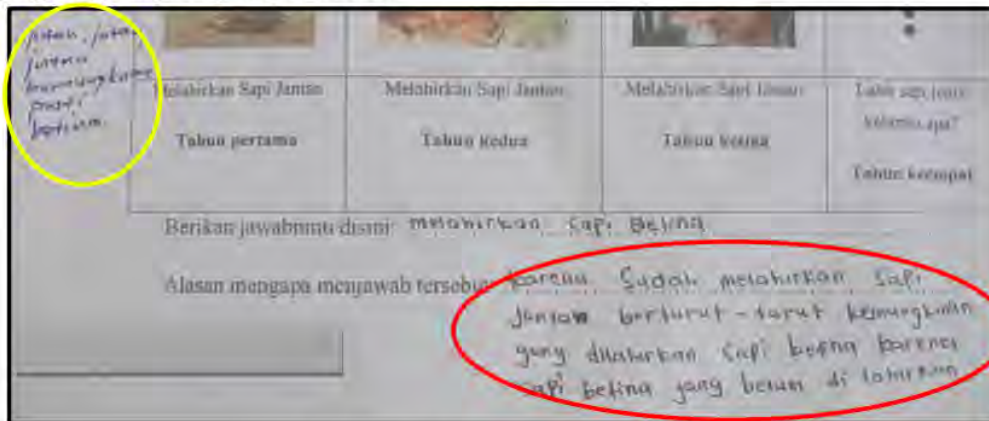 jantan, jantan
jantan
kemungkinan
pasti
betina.
Melahirkan Sapi Jantan
Melahirkan Sapi Jantan
Melahirkan Sapi Jantan
Lahir sapi jenis
kelamin apa?
Tahun pertama
Tahun kedua
Tahun ketiga
Tahun keempat
Berikan jawabmu disini: melahirkan sapi Betina
Alasan mengapa menjawab tersebut: karena Sudah melahirkan sapi
jantan berturut-turut kemungkinan
yang dilahirkan sapi betina karena
sapi betina yang belum di lahirkan